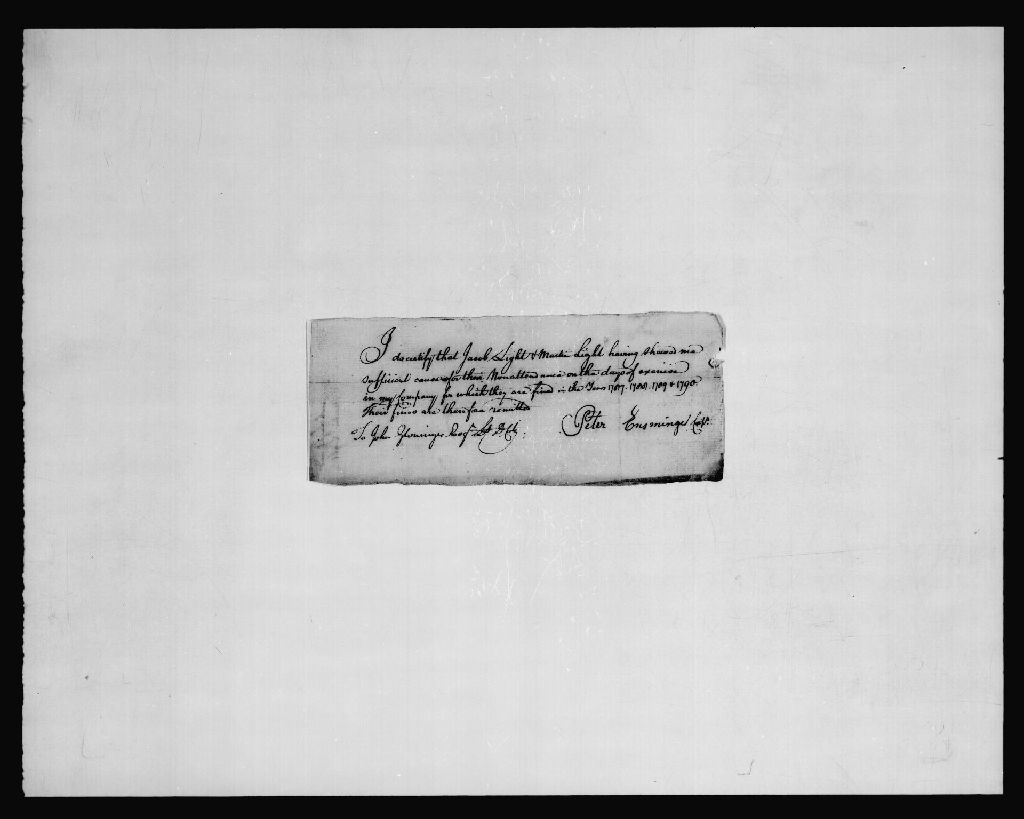 I do certify that Jacob Light & Martin Light having shewed me
sufficient cause for their Nonattendance on the days of exercise
in my Company for which they are fined in the Years 1787. 1788. 1789 & 1790.
their fines are therefore remitted
Peter Ensminger Capt.
To John Gloninger Esqr. Lt. D. Cty.